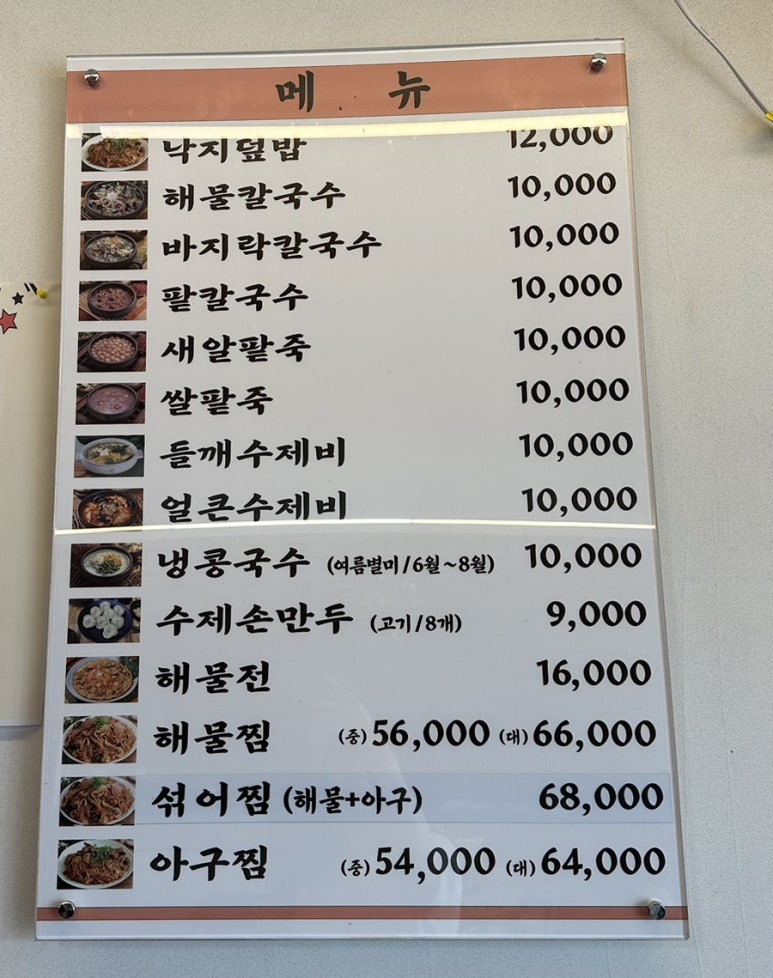 메 뉴
낙지덮밥 12,000
해물칼국수 10,000
바지락칼국수 10,000
팥칼국수 10,000
새알팥죽 10,000
쌀팥죽 10,000
들깨수제비 10,000
얼큰수제비 10,000
냉콩국수 (여름별미/6월~8월) 10,000
수제손만두 (고기/8개) 9,000
해물전 16,000
해물찜 (중)56,000 (대)66,000
섞어찜 (해물+아구) 68,000
아구찜 (중)54,000 (대)64,000